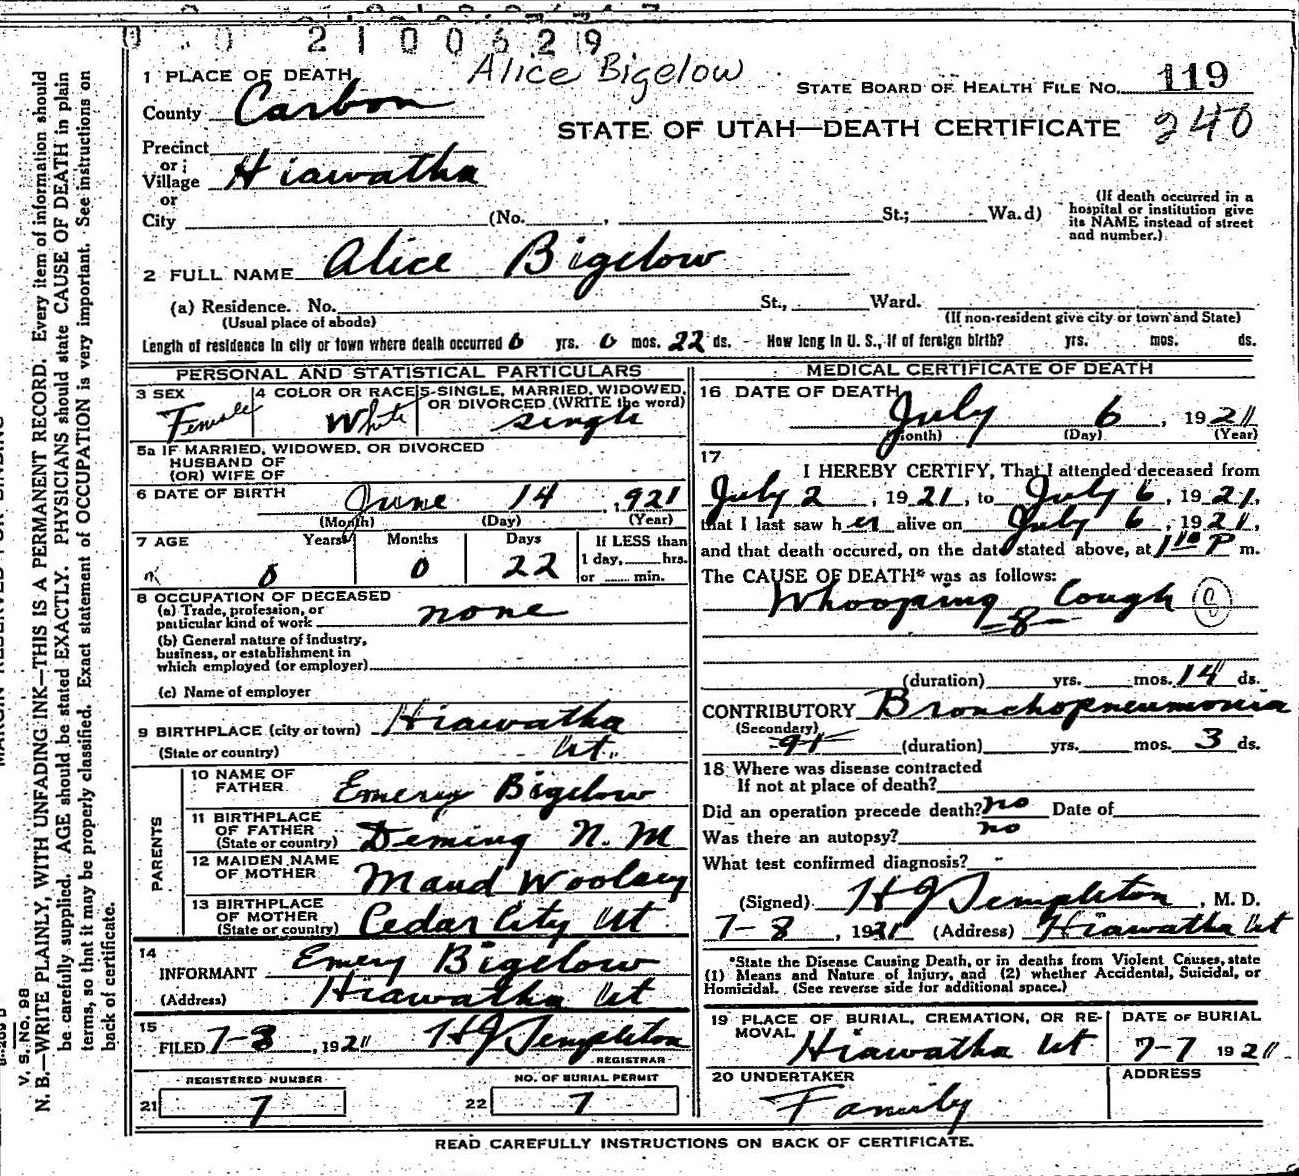 0 0 2100629
Alice Bigelow
1 PLACE OF DEATH
STATE BOARD OF HEALTH FILE No. 119
County Carbon
240
STATE OF UTAH—DEATH CERTIFICATE
Precinct
or
Village Hiawatha
or
City (No. , St.; Wa.d)
(If death occurred in a hospital or institution give its NAME instead of street and number.)
2 FULL NAME Alice Bigelow
(a) Residence. No. St., Ward.
(Usual place of abode) (If non-resident give city or town and State)
Length of residence in city or town where death occurred 0 yrs. 0 mos. 22 ds. - How long in U. S., if of foreign birth? yrs. mos. ds.
PERSONAL AND STATISTICAL PARTICULARS
3 SEX Female
4 COLOR OR RACE White
5-SINGLE, MARRIED, WIDOWED, OR DIVORCED (WRITE the word) single
5a IF MARRIED, WIDOWED, OR DIVORCED
HUSBAND OF
(OR) WIFE OF
6 DATE OF BIRTH June 14, 921
(Month) (Day) (Year)
7 AGE Years Months Days If LESS than
0 0 22 1 day, hrs.
or min.
8 OCCUPATION OF DECEASED
(a) Trade, profession, or
particular kind of work none
(b) General nature of industry,
business, or establishment in
which employed (or employer)
(c) Name of employer
9 BIRTHPLACE (city or town) Hiawatha
(State or country) Ut.
PARENTS
10 NAME OF FATHER Emery Bigelow
11 BIRTHPLACE OF FATHER (State or country) Deming N. M
12 MAIDEN NAME OF MOTHER Maud Woolsey
13 BIRTHPLACE OF MOTHER (State or country) Cedar City Ut
14
INFORMANT Emery Bigelow
(Address) Hiawatha Ut
15
FILED 7-8, 1921 HJ Templeton
REGISTRAR
REGISTERED NUMBER NO. OF BURIAL PERMIT
21 7 22 7
MEDICAL CERTIFICATE OF DEATH
16 DATE OF DEATH
July 6, 1921
(Month) (Day) (Year)
17
I HEREBY CERTIFY, That I attended deceased from
July 2, 1921, to July 6, 1921,
that I last saw her alive on July 6, 1921,
and that death occured, on the date stated above, at 1 10 P m.
The CAUSE OF DEATH* was as follows:
Whooping Cough
8
(duration) yrs. mos. 14 ds.
CONTRIBUTORY Bronchopneumonia
(Secondary)
91 (duration) yrs. mos. 3 ds.
18 Where was disease contracted
If not at place of death?
Did an operation precede death? no Date of
Was there an autopsy? no
What test confirmed diagnosis? -
(Signed) HJ Templeton, M. D.
7-8, 1921 (Address) Hiawatha Ut
*State the Disease Causing Death, or in deaths from Violent Causes, state
(1) Means and Nature of Injury, and (2) whether Accidental, Suicidal, or
Homicidal. (See reverse side for additional space.)
19 PLACE OF BURIAL, CREMATION, OR RE-
MOVAL Hiawatha Ut
DATE OF BURIAL
7-7 1921.
20 UNDERTAKER
Family
ADDRESS
READ CAREFULLY INSTRUCTIONS ON BACK OF CERTIFICATE.
V. S. No. 98
N. B.—WRITE PLAINLY, WITH UNFADING INK—THIS IS A PERMANENT RECORD. Every item of information should
be carefully supplied. AGE should be stated EXACTLY. PHYSICIANS should state CAUSE OF DEATH in plain
terms, so that it may be properly classified. Exact statement of OCCUPATION is very important. See instructions on
back of certificate.